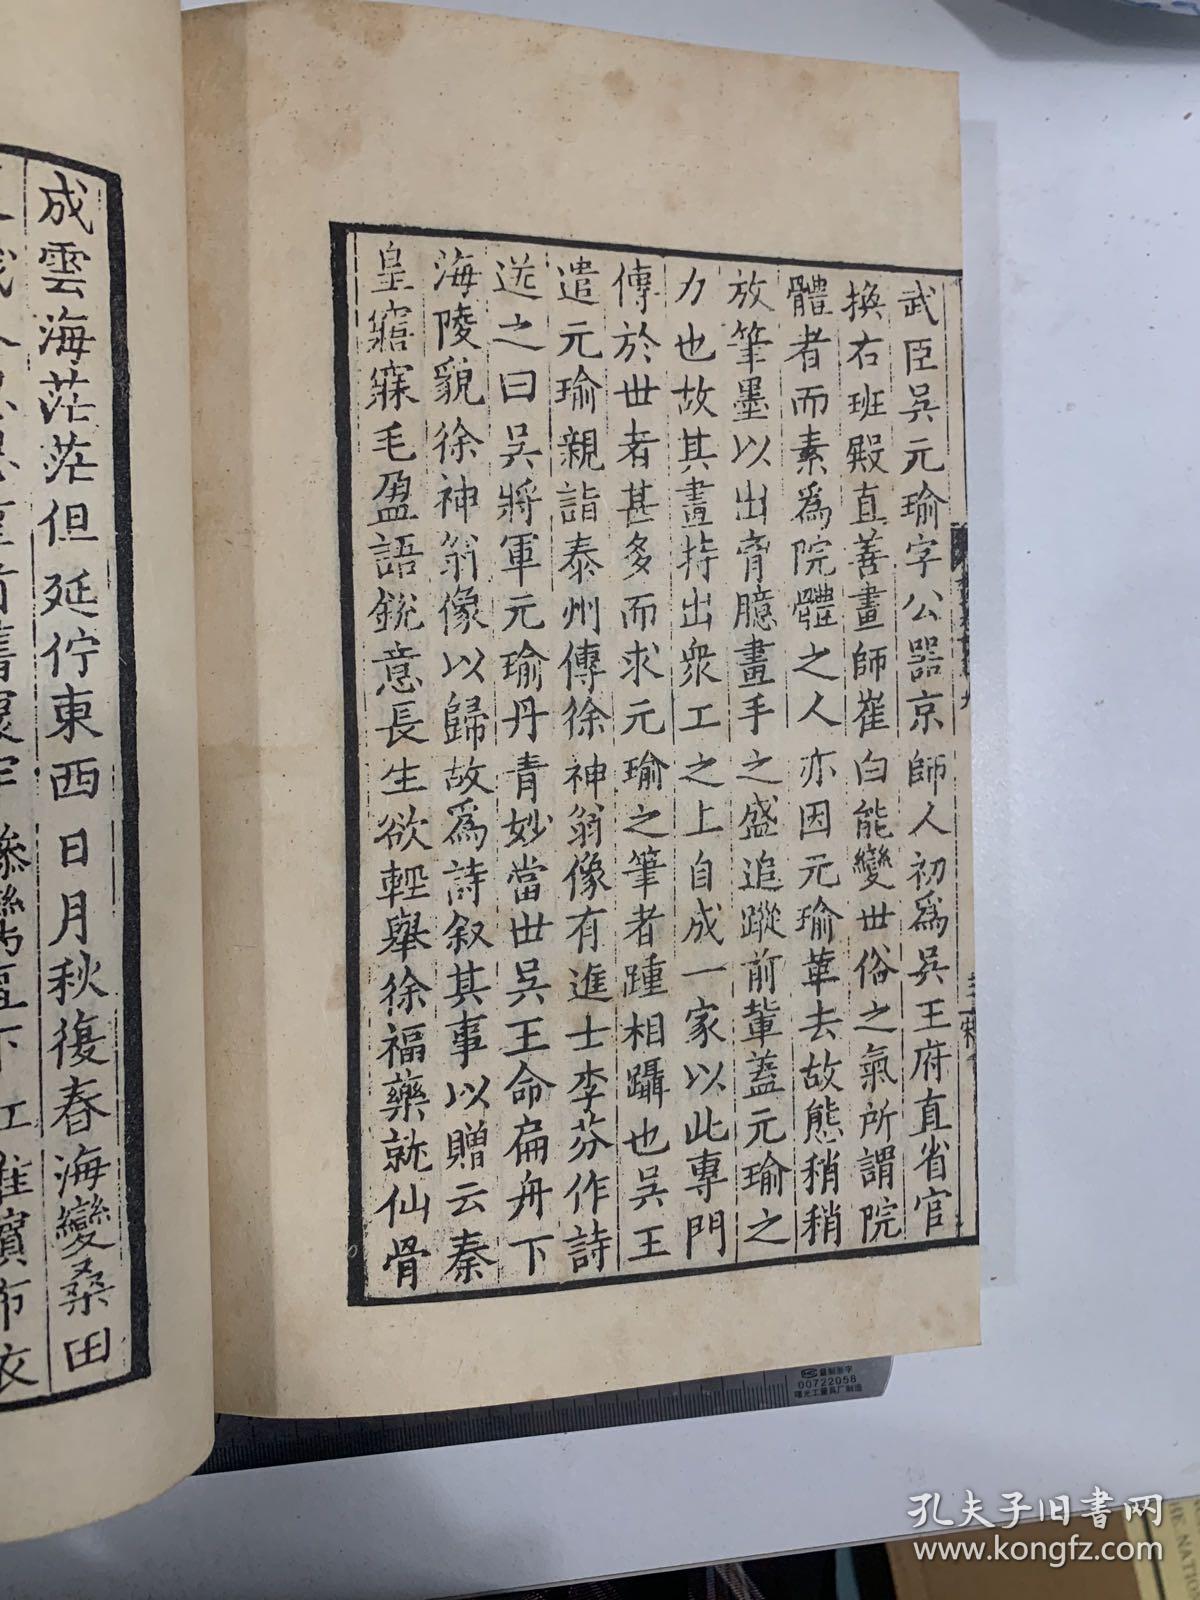 武臣吳元瑜字公器京師人初爲吳王府直省官
換右班殿直善畫師崔白能變世俗之氣所謂院
體者而素爲院體之人亦因元瑜革去故態稍稍
放筆墨以出胷臆畫手之盛追蹤前輩蓋元瑜之
力也故其畫持出衆工之上自成一家以此專門
傳於世者甚多而求元瑜之筆者踵相躡也吳王
遣元瑜親詣泰州傳徐神翁像有進士李芬作詩
送之曰吳將軍元瑜丹青妙當世吳王命扁舟下
海陵貌徐神翁像以歸故爲詩叙其事以贈云秦
皇寤寐毛盈語銳意長生欲輕舉徐福藥就仙骨
成雲海茫茫但延佇東西日月秋復春海變桑田
00722058
曙光工量具厂制造
孔夫子旧书网
www.kongfz.com